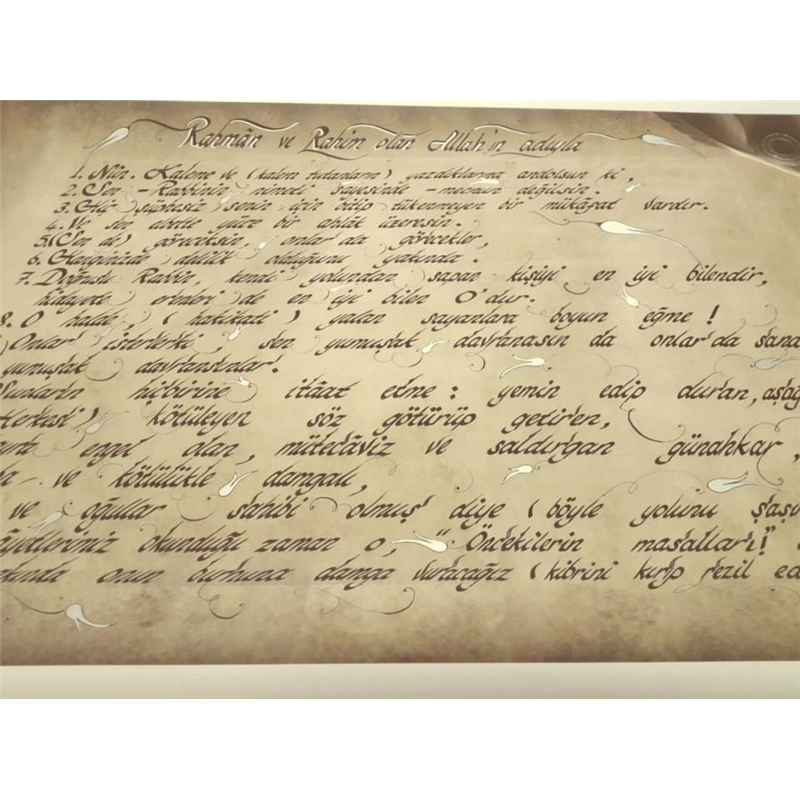 Rahmân ve Rahim olan Allah'ın adıyla
1. Nûn. Kaleme ve (kalem tutanların) yazdıklarına andolsun ki,
2. Sen - Rabbinin nimeti sayesinde - mecnun değilsin.
3. Hiç şüphesiz senin için bitip tükenmeyen bir mükâfat vardır.
4. Ve sen elbette yüce bir ahlâk üzeresin.
5. (Sen de) göreceksin, onlar da görecekler,
6. Hanginizde delilik olduğunu yakında.
7. Doğrusu Rabbin, kendi yolundan sapan kişiyi en iyi bilendir,
hidayete erenleri de en iyi bilen O'dur.
8. O halde, (hakikati) yalan sayanlara boyun eğme!
Onlar isterler ki sen yumuşak davranasın da onlar da sana
yumuşak davransınlar.
Şunların hiçbirine itâat etme: yemin edip duran, aşağ
Herkesi) kötüleyen söz götürüp getiren,
engel olan, mütecâviz ve saldırgan günahkar,
- ve kötülükle damgalı,
ve oğullar sahibi olmuş diye (böyle yolunu şaşı
âyetlerimiz okunduğu zaman o, "Öncekilerin masalları!"
onun burnuna damga vuracağız (kibrini kırıp rezil ed